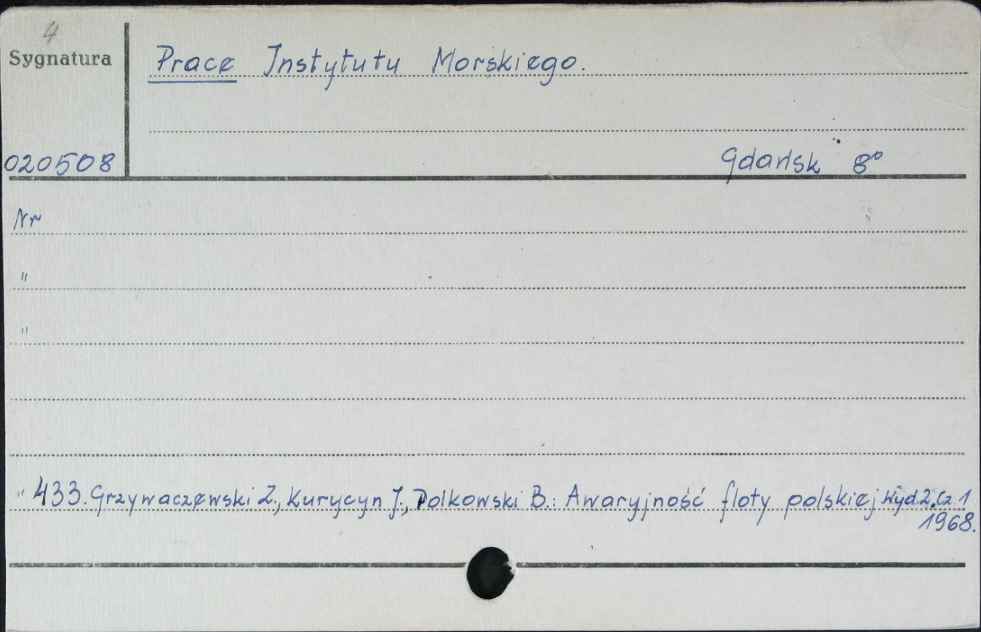 4
Sygnatura
Prace Instytutu Morskiego.
020508
Gdańsk 8°
Nr
"
"
" 433. Grzywaczewski Z., Kurycyn J., Polkowski B.: Awaryjność floty polskiej Wyd.2. Cz 1
1968.